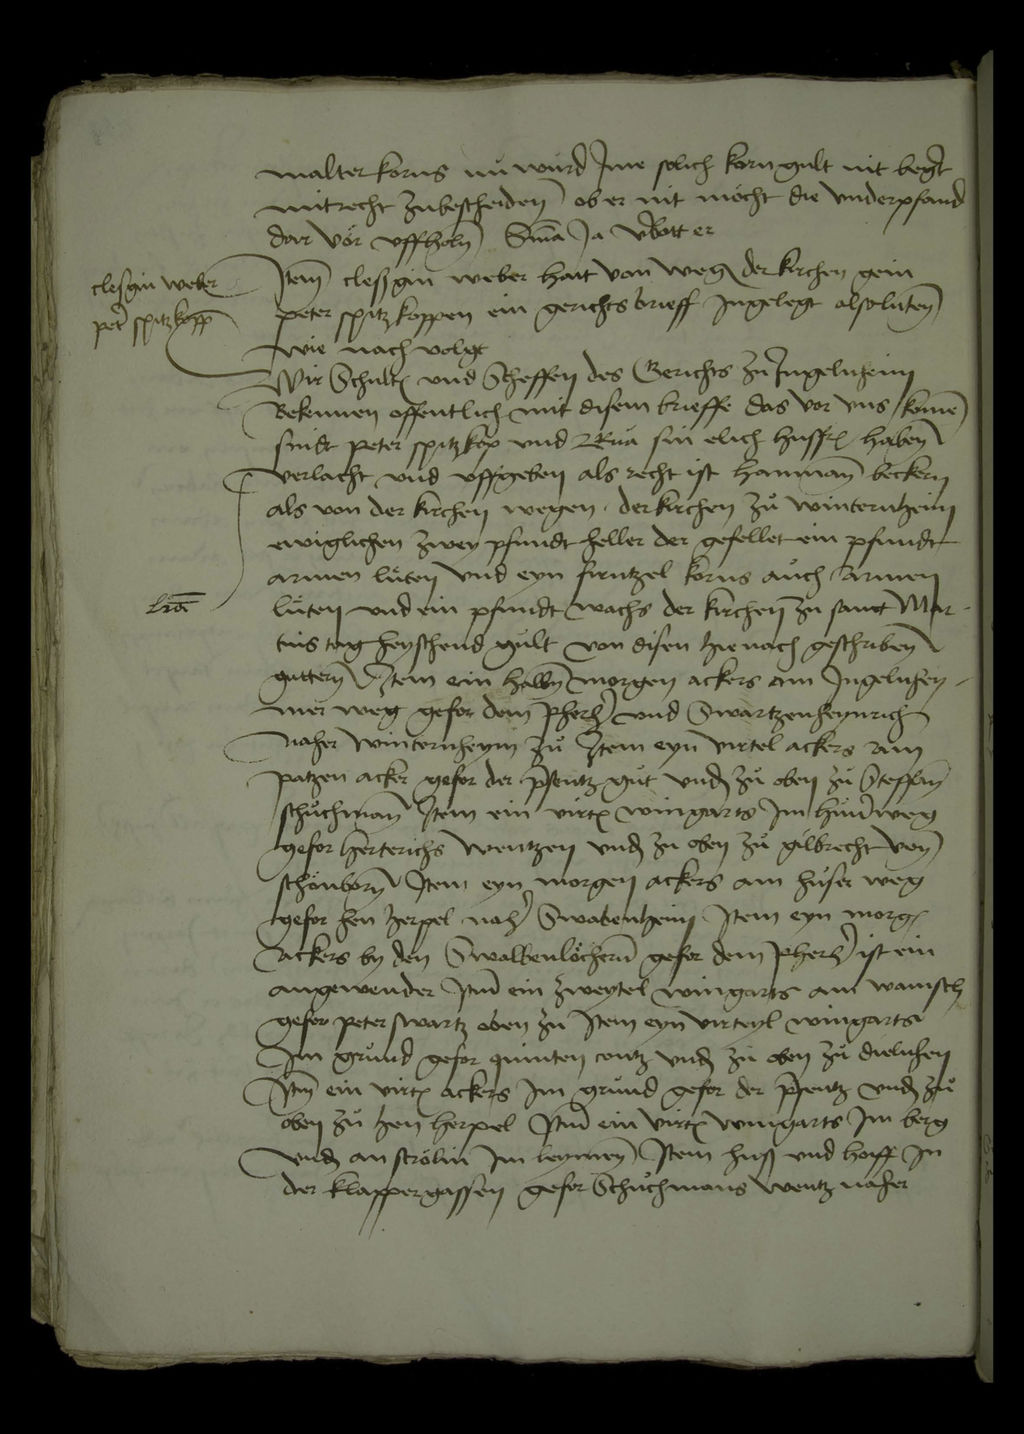 malter korns nu wurd Ime solich korn gult nit begert
mitrecht zubescheiden ob er nit mocht die underpfand
dar vör uffholn Snia Ja verbott er
clesgin weber
peter spitzkopp
Item clesgin weber hait von wegen der kirchen gein
peter spitzkoppen ein gerichts brieff Ingelegt absoluten
wie nach volgt
Wir Schulteß und Scheffen des Gerichts zu Ingelnheim
Bekennen offentlich mit disem brieffe das vor uns komen
sindt peter spitzkop und sin elich husfrau haben
verlacht und uffgeben als recht ist hanman beckern
als von der kirchen wegen der kirchen zu winternheim
ewiglichen zwey pfundt heller der gefellet ein pfundt
armen luten und eyn firntzel korns auch armen
lra
luten und ein pfundt wachs der kirchen zu sanct Mar-
tins tag heyschend gult von disen hienach geschriben
guttern Item ein halben morgen ackers am Ingelnhey-
mer weg gefor dem pherher und Swartzenheynrich
naher winternheym zu Item eyn virtel ackers am
patzen acker gefor der presentz gut unden zu oben zu Steffan
schuchman Item ein virtel wingarts Im hundweg
gefor herterichs wentzen unden zu oben zu gilbrecht von
schonborn Item eyn morgen ackers am huser weg
gefor hen herpel naher Swabenheim Item eyn morgen
ackers by den Swalbenlöchern gefor dem pherher ist ein
angewender Item ein zweytel wingarts am
gefor peter swartz oben zu Item eyn virteyl wingarts
Im grund gefor quinten contz unden zu oben zu dielnhen
Item ein virtel ackers Im grund gefor der presentz unden zu
oben zu hen herpel Item ein virtel wingarts Im berg
unden an strölin Im leymen Item huß und hoiff In
der klappergassen gefor Schuchmans wentz naher